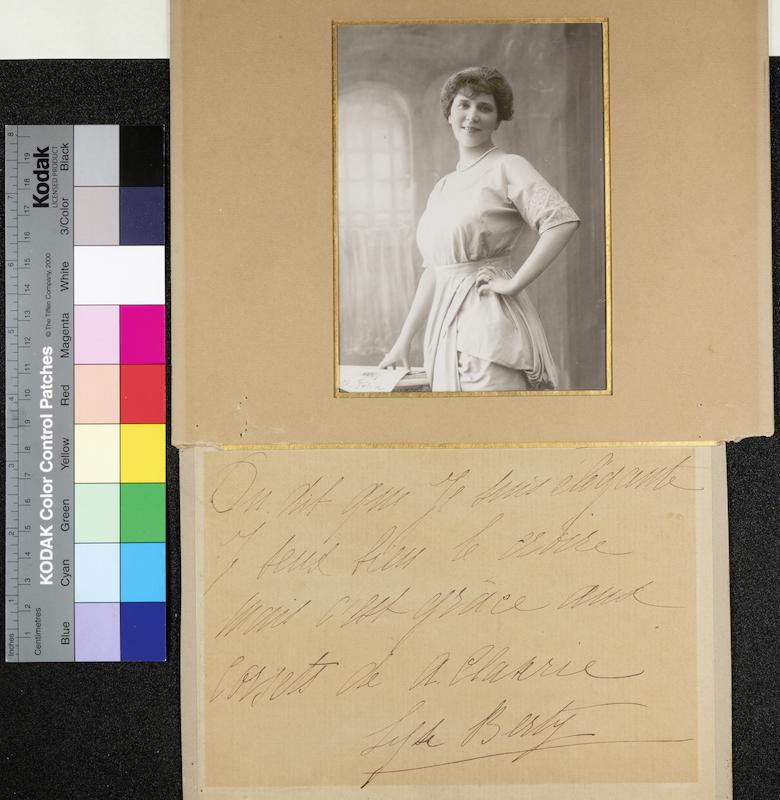 On dit que Je suis élégante
J veux bien le croire
mais c'est grâce aux
Corsets de A. Claverie
Lyse Berty
Kodak
LICENSED PRODUCT
KODAK Color Control Patches
© The Tiffen Company, 2000
Inches
1 2 3 4 5 6 7 8
Centimetres
1 2 3 4 5 6 7 8 9 10 11 12 13 14 15 16 17 18 19
Blue
Cyan
Green
Yellow
Red
Magenta
White
3/Color
Black